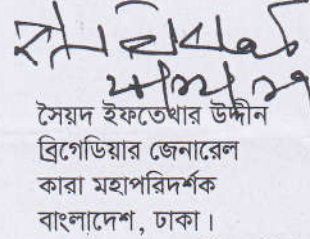 সৈয়দ ইফতেখার উদ্দীন
ব্রিগেডিয়ার জেনারেল
কারা মহাপরিদর্শক
বাংলাদেশ, ঢাকা।